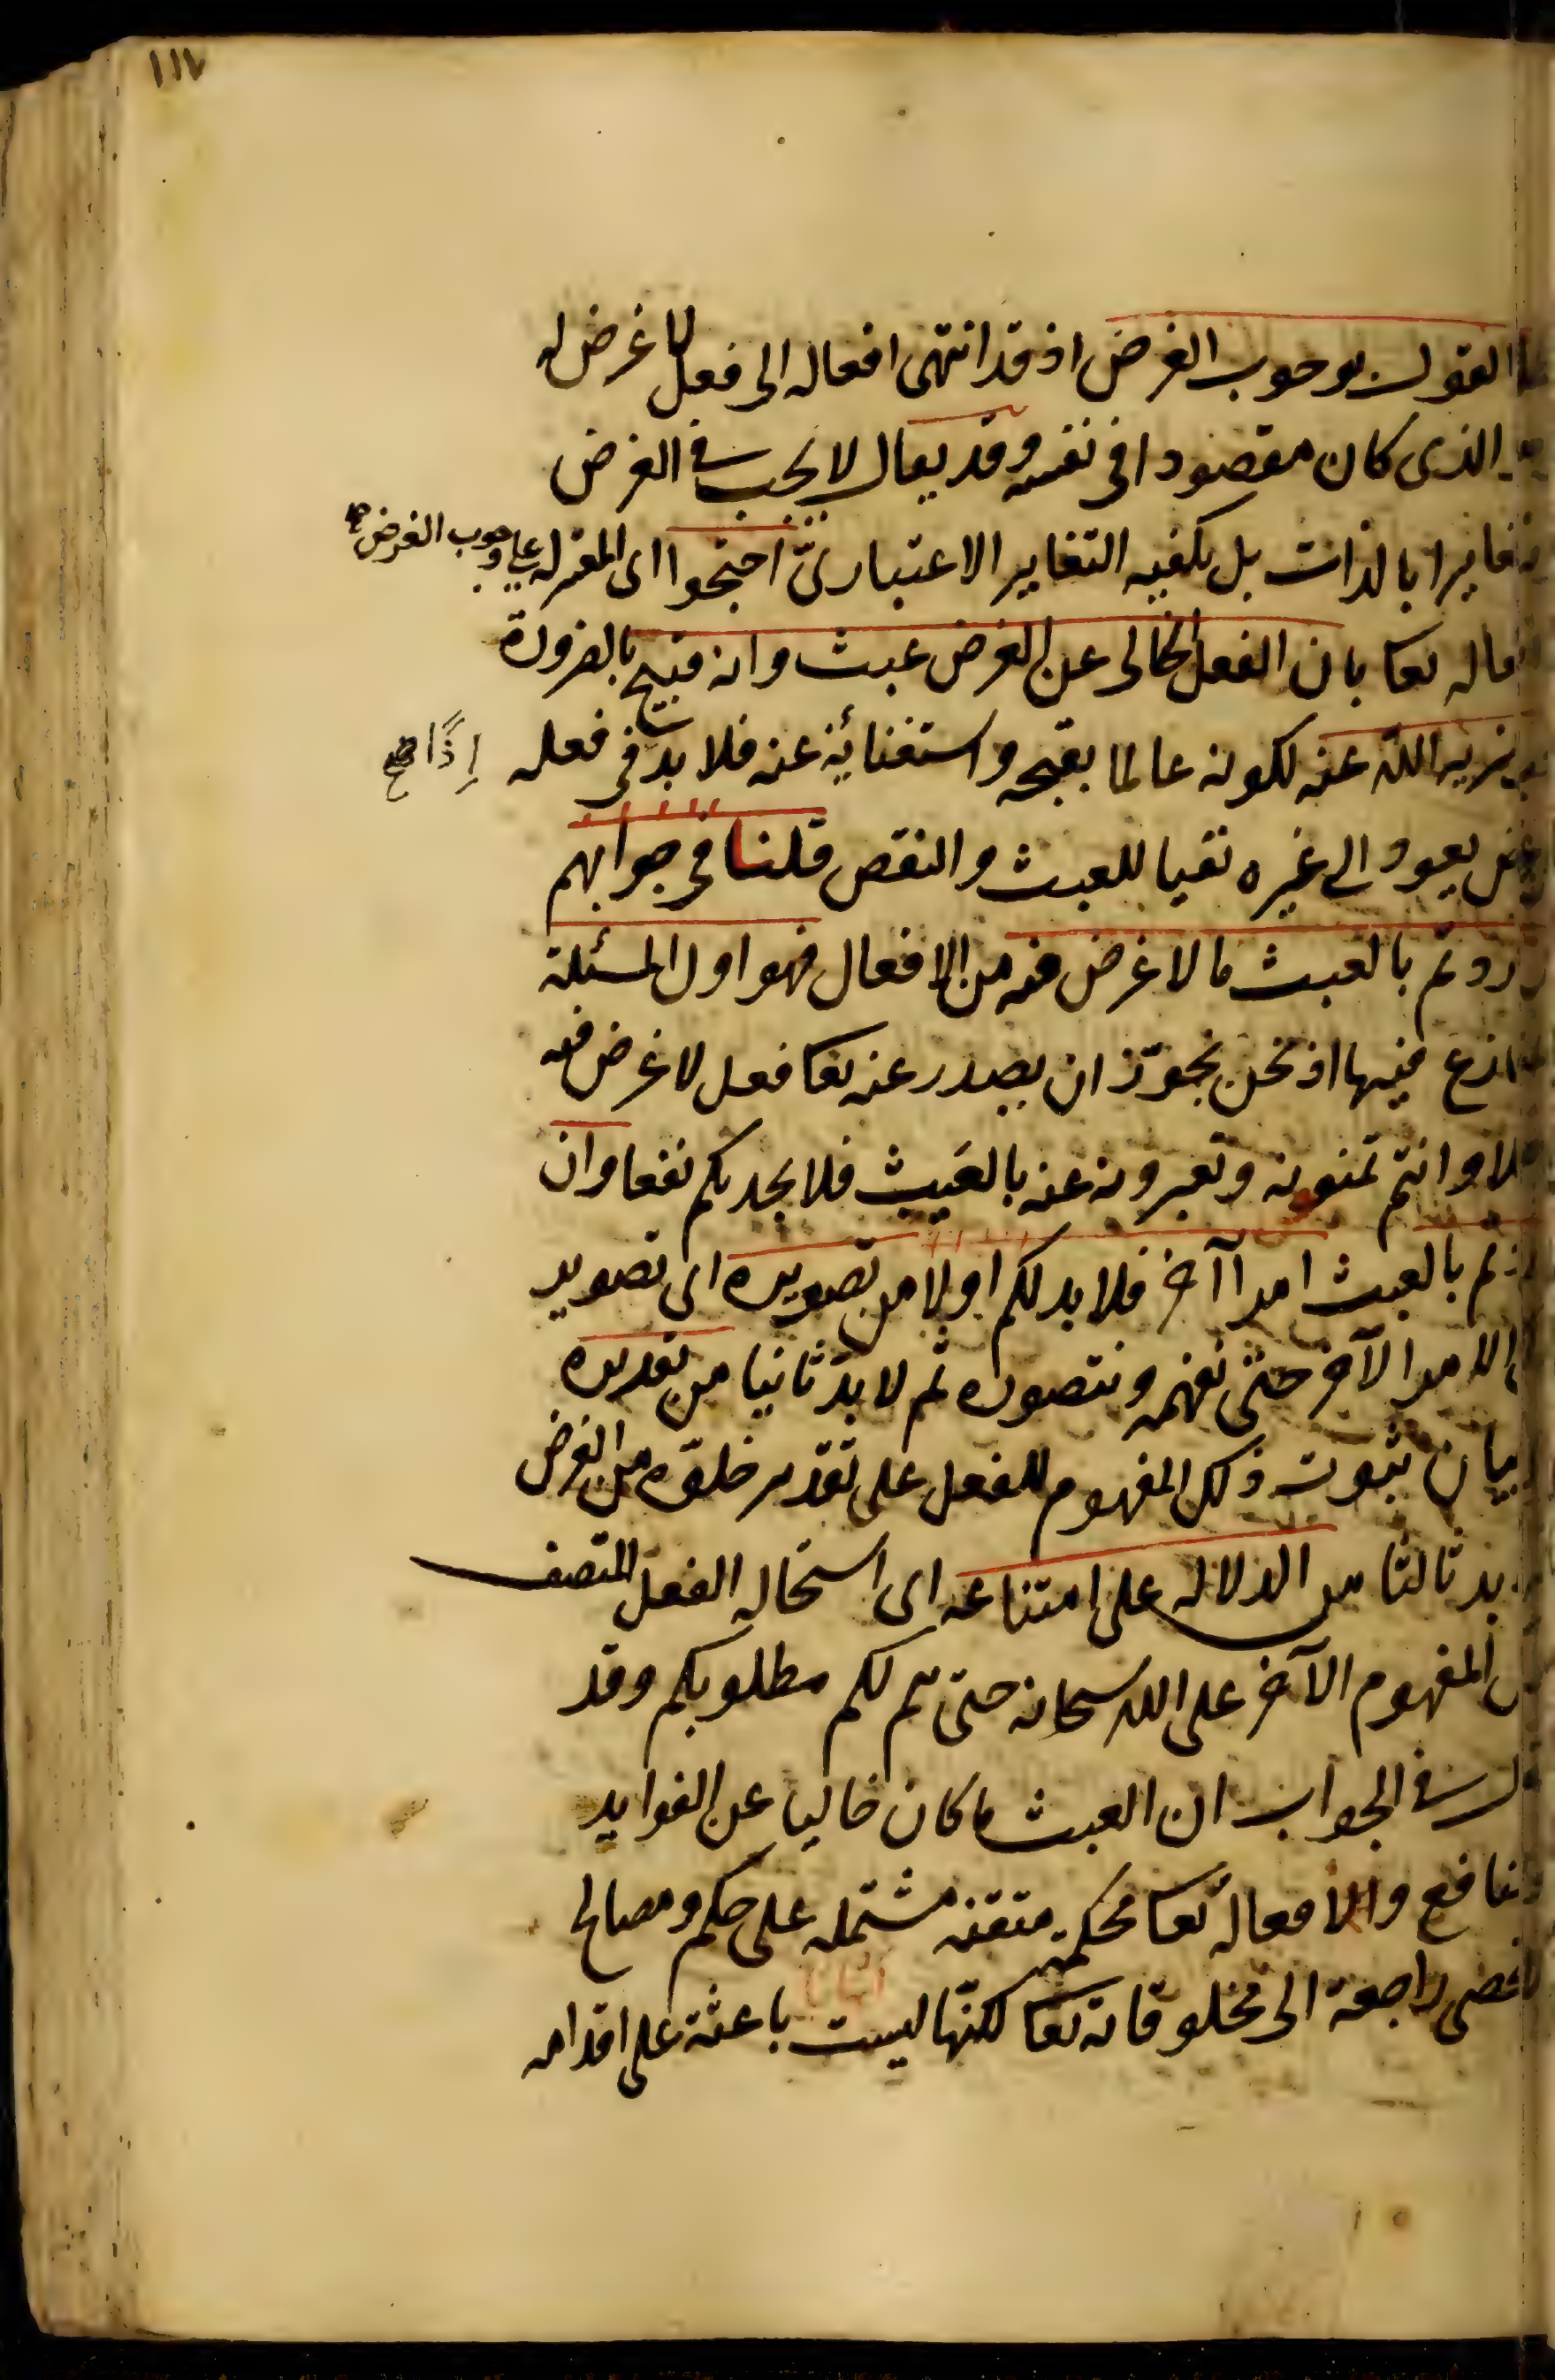 ١١٧
القول بوجوب الغرض اذ قد انتهى افعاله الى فعل لا غرض له
الذى كان مقصودا فى نفسه وقد يقال لا يجب فى الغرض
بالذات بل يكفيه التغاير الاعتبارىّ احتجوا اى المعتزله على وجوب الغرض
تعا بان الفعل الخالى عن الغرض عبث وانه قبيح بالضرورة
الله عنه لكونه عالما بقبحه واستغنائه عنه فلا بد فى فعله إذًا صح
يعود الى غيره نفيا للعبث والنقص قلنا فى جوابهم
بالعبث ما لا غرض فيه من الافعال فهو اول المسئلة
فيها اذ نحن نجوّز ان يصدر عنه تعا فعل لا غرض فيه
وانتم تمنعونه وتعبرونه عنه بالعبث فلا يجديكم نفعا وان
بالعبث امرا آخر فلا بد لكم اولا من تصويره اى تصوير
الامر الآخر حتى نفهمه ونتصوره ثم لا بدّ ثانيا من تقريره
بيان ثبوت ذلك المفهوم للفعل على تقدير خلوّه من الغرض
بد ثالثا من الدلاله على امتناعه اى استحاله الفعل المتصف
المفهوم الآخر على الله سبحانه حتى يتم لكم مطلوبكم وقد
فى الجواب ان العبث ما كان خاليا عن الفوايد
والافعاله تعا محكمة متقنه مشتمله على حكم ومصالح
راجعة الى مخلوقاته تعا لكنّها ليست باعثة على اقدامه